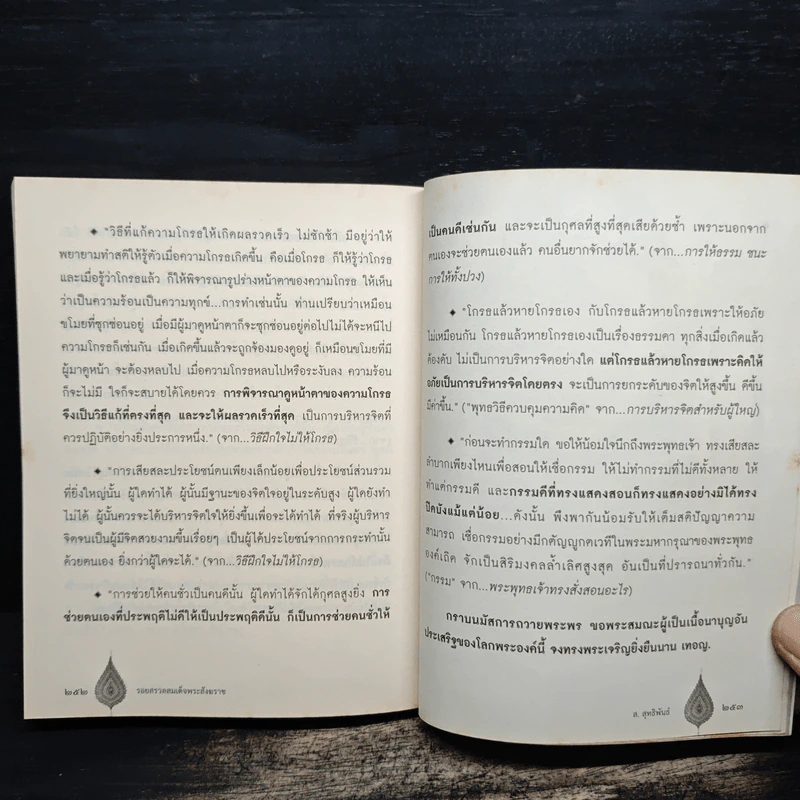 ◆ "วิธีที่แก้ความโกรธให้เกิดผลรวดเร็ว ไม่ชักช้า มีอยู่ว่าให้
พยายามทำสติให้รู้ตัวเมื่อความโกรธเกิดขึ้น คือเมื่อโกรธ ก็ให้รู้ว่าโกรธ
และเมื่อรู้ว่าโกรธแล้ว ก็ให้พิจารณารูปร่างหน้าตาของความโกรธ ให้เห็น
ว่าเป็นความร้อนเป็นความทุกข์...การทำเช่นนั้น ท่านเปรียบว่าเหมือน
ขโมยที่ซุกซ่อนอยู่ เมื่อมีผู้มาดูหน้าตาก็จะซุกซ่อนอยู่ต่อไปไม่ได้จะหนีไป
ความโกรธก็เช่นกัน เมื่อเกิดขึ้นแล้วจะถูกจ้องมองดูอยู่ ก็เหมือนขโมยที่มี
ผู้มาดูหน้า จะต้องหลบไป เมื่อความโกรธหลบไปหรือระงับลง ความร้อน
ก็จะไม่มี ใจก็จะสบายได้โดยควร การพิจารณาดูหน้าตาของความโกรธ
จึงเป็นวิธีแก้ที่ตรงที่สุด และจะให้ผลรวดเร็วที่สุด เป็นการบริหารจิตที่
ควรปฏิบัติอย่างยิ่งประการหนึ่ง." (จาก...วิธีฝึกใจไม่ให้โกรธ)
◆ "การเสียสละประโยชน์ตนเพียงเล็กน้อยเพื่อประโยชน์ส่วนรวม
ที่ยิ่งใหญ่นั้น ผู้ใดทำได้ ผู้นั้นมีฐานะของจิตใจอยู่ในระดับสูง ผู้ใดยังทำ
ไม่ได้ ผู้นั้นควรจะได้บริหารจิตใจให้ยิ่งขึ้นเพื่อจะได้ทำได้ ที่จริงผู้บริหาร
จิตจนเป็นผู้มีจิตสวยงามขึ้นเรื่อยๆ เป็นผู้ได้ประโยชน์จากการกระทำนั้น
ด้วยตนเอง ยิ่งกว่าผู้ใดจะได้." (จาก...วิธีฝึกใจไม่ให้โกรธ)
◆ "การช่วยให้คนชั่วเป็นคนดีนั้น ผู้ใดทำได้จักได้กุศลสูงยิ่ง การ
ช่วยตนเองที่ประพฤติไม่ดีให้เป็นประพฤติดีนั้น ก็เป็นการช่วยคนชั่วให้
๒๕๒
รอยสรวลสมเด็จพระสังฆราช
เป็นคนดีเช่นกัน และจะเป็นกุศลที่สูงที่สุดเสียด้วยซ้ำ เพราะนอกจาก
ตนเองจะช่วยตนเองแล้ว คนอื่นยากจักช่วยได้." (จาก...การให้ธรรม ชนะ
การให้ทั้งปวง)
◆ "โกรธแล้วหายโกรธเอง กับโกรธแล้วหายโกรธเพราะให้อภัย
ไม่เหมือนกัน โกรธแล้วหายโกรธเองเป็นเรื่องธรรมดา ทุกสิ่งเมื่อเกิดแล้ว
ต้องดับ ไม่เป็นการบริหารจิตอย่างใด แต่โกรธแล้วหายโกรธเพราะคิดให้
อภัยเป็นการบริหารจิตโดยตรง จะเป็นการยกระดับของจิตให้สูงขึ้น ดีขึ้น
มีค่าขึ้น." ("พุทธวิธีควบคุมความคิด" จาก...การบริหารจิตสำหรับผู้ใหญ่)
◆ "ก่อนจะทำกรรมใด ขอให้น้อมใจนึกถึงพระพุทธเจ้า ทรงเสียสละ
ลำบากเพียงไหนเพื่อสอนให้เชื่อกรรม ให้ไม่ทำกรรมที่ไม่ดีทั้งหลาย ให้
ทำแต่กรรมดี และกรรมดีที่ทรงแสดงสอนก็ทรงแสดงอย่างมิได้ทรง
ปิดบังแม้แต่น้อย...ดังนั้น พึงพากันน้อมรับให้เต็มสติปัญญาความ
สามารถ เชื่อกรรมอย่างมีกตัญญูกตเวทีในพระมหากรุณาของพระพุทธ
องค์เถิด จักเป็นสิริมงคลล้ำเลิศสูงสุด อันเป็นที่ปรารถนาทั่วกัน."
("กรรม" จาก...พระพุทธเจ้าทรงสั่งสอนอะไร)
กราบนมัสการถวายพระพร ขอพระสมณะผู้เป็นเนื้อนาบุญอัน
ประเสริฐของโลกพระองค์นี้ จงทรงพระเจริญยิ่งยืนนาน เทอญ.
ส. สุทธิพันธ์
๒๕๓